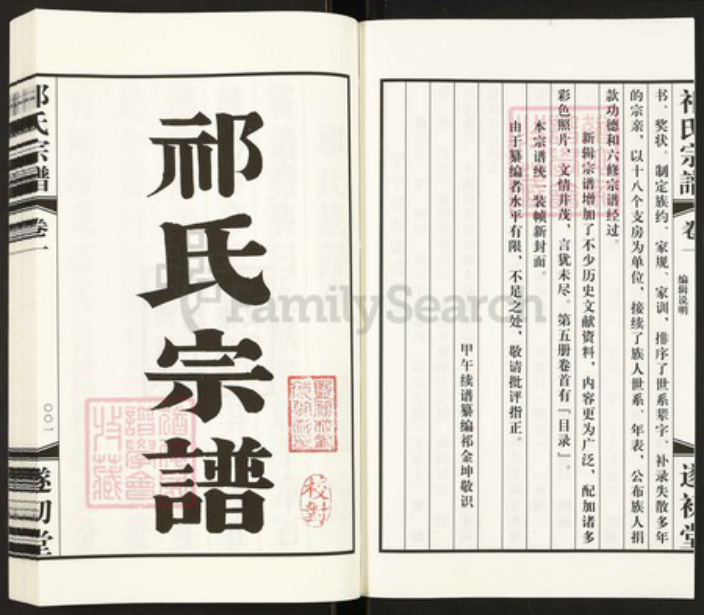 祁氏宗譜
卷一
编辑说明
遂初堂
书、奖状。制定族约、家规、家训,排序了世系辈字、补录失散多年
的宗亲,以十八个支房为单位,接续了族人世系、年表,公布族人捐
款功德和六修宗谱经过。
新辑宗谱增加了不少历史文献资料,内容更为广泛,配加诸多
彩色照片,文情并茂,言犹未尽。第五册卷首有「目录」。
本宗谱统一装帧新封面。
由于纂编者水平有限,不足之处,敬请批评指正。
甲午续谱纂编祁金坤敬识
祁氏宗譜
校對
祁氏宗譜
卷一
〇〇一
遂初堂
FamilySearch